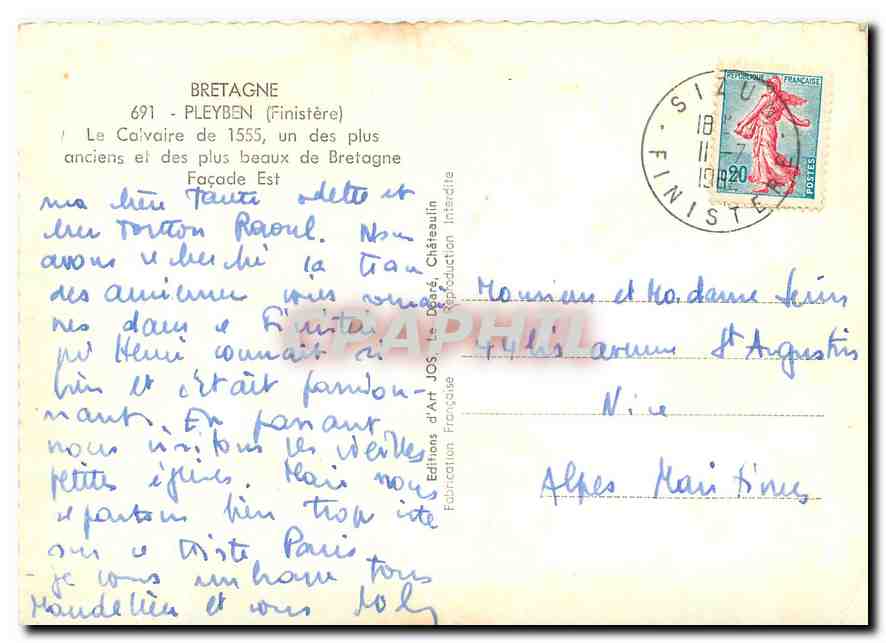 BRETAGNE
691 - PLEYBEN (Finistère)
Le Calvaire de 1555, un des plus
anciens et des plus beaux de Bretagne
Façade Est
ma chère Tante Odette et
cher Tonton Raoul. Nous
avons recherché la trace
des anciennes voies romai
nes dans le Finistère
qu'Henri connait si
bien et c'était passion-
nant. En passant
nous visitons les vieilles
petites églises. Mais nous
repartons bien trop vite
sur ce triste Paris
je vous embrasse tous
et vous
Editions d'Art JOS Le Doaré, Châteaulin
Fabrication Française Reproduction Interdite
CPAPHIL
SIZUN
18
11-7
196
FINISTERE
REPUBLIQUE FRANÇAISE
0,20
POSTES
Monsieur et Madame
44 bis avenue St Augustin
Nice
Alpes Maritimes